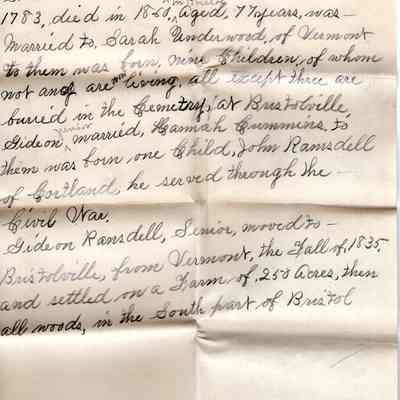 1783, died in 1850, aged, 77 years, was —
Married to, Sarah Underwood, of Vermont
to them was born, nine Children, of whom
not any are now living, all except three are
buried in the Cemetry, at Bristolville,
Gideon junior married, Hannah Cummins. to
them was born one Child, John Ramsdell
of Cortland, he served through the —
Civil War.
Gideon Ransdell, Senior, moved to —
Bristolville, from Vermont, the Fall of, 1835,
and settled on a Farm, of, 250 Acres, then
all woods, in the South part, of Bristol